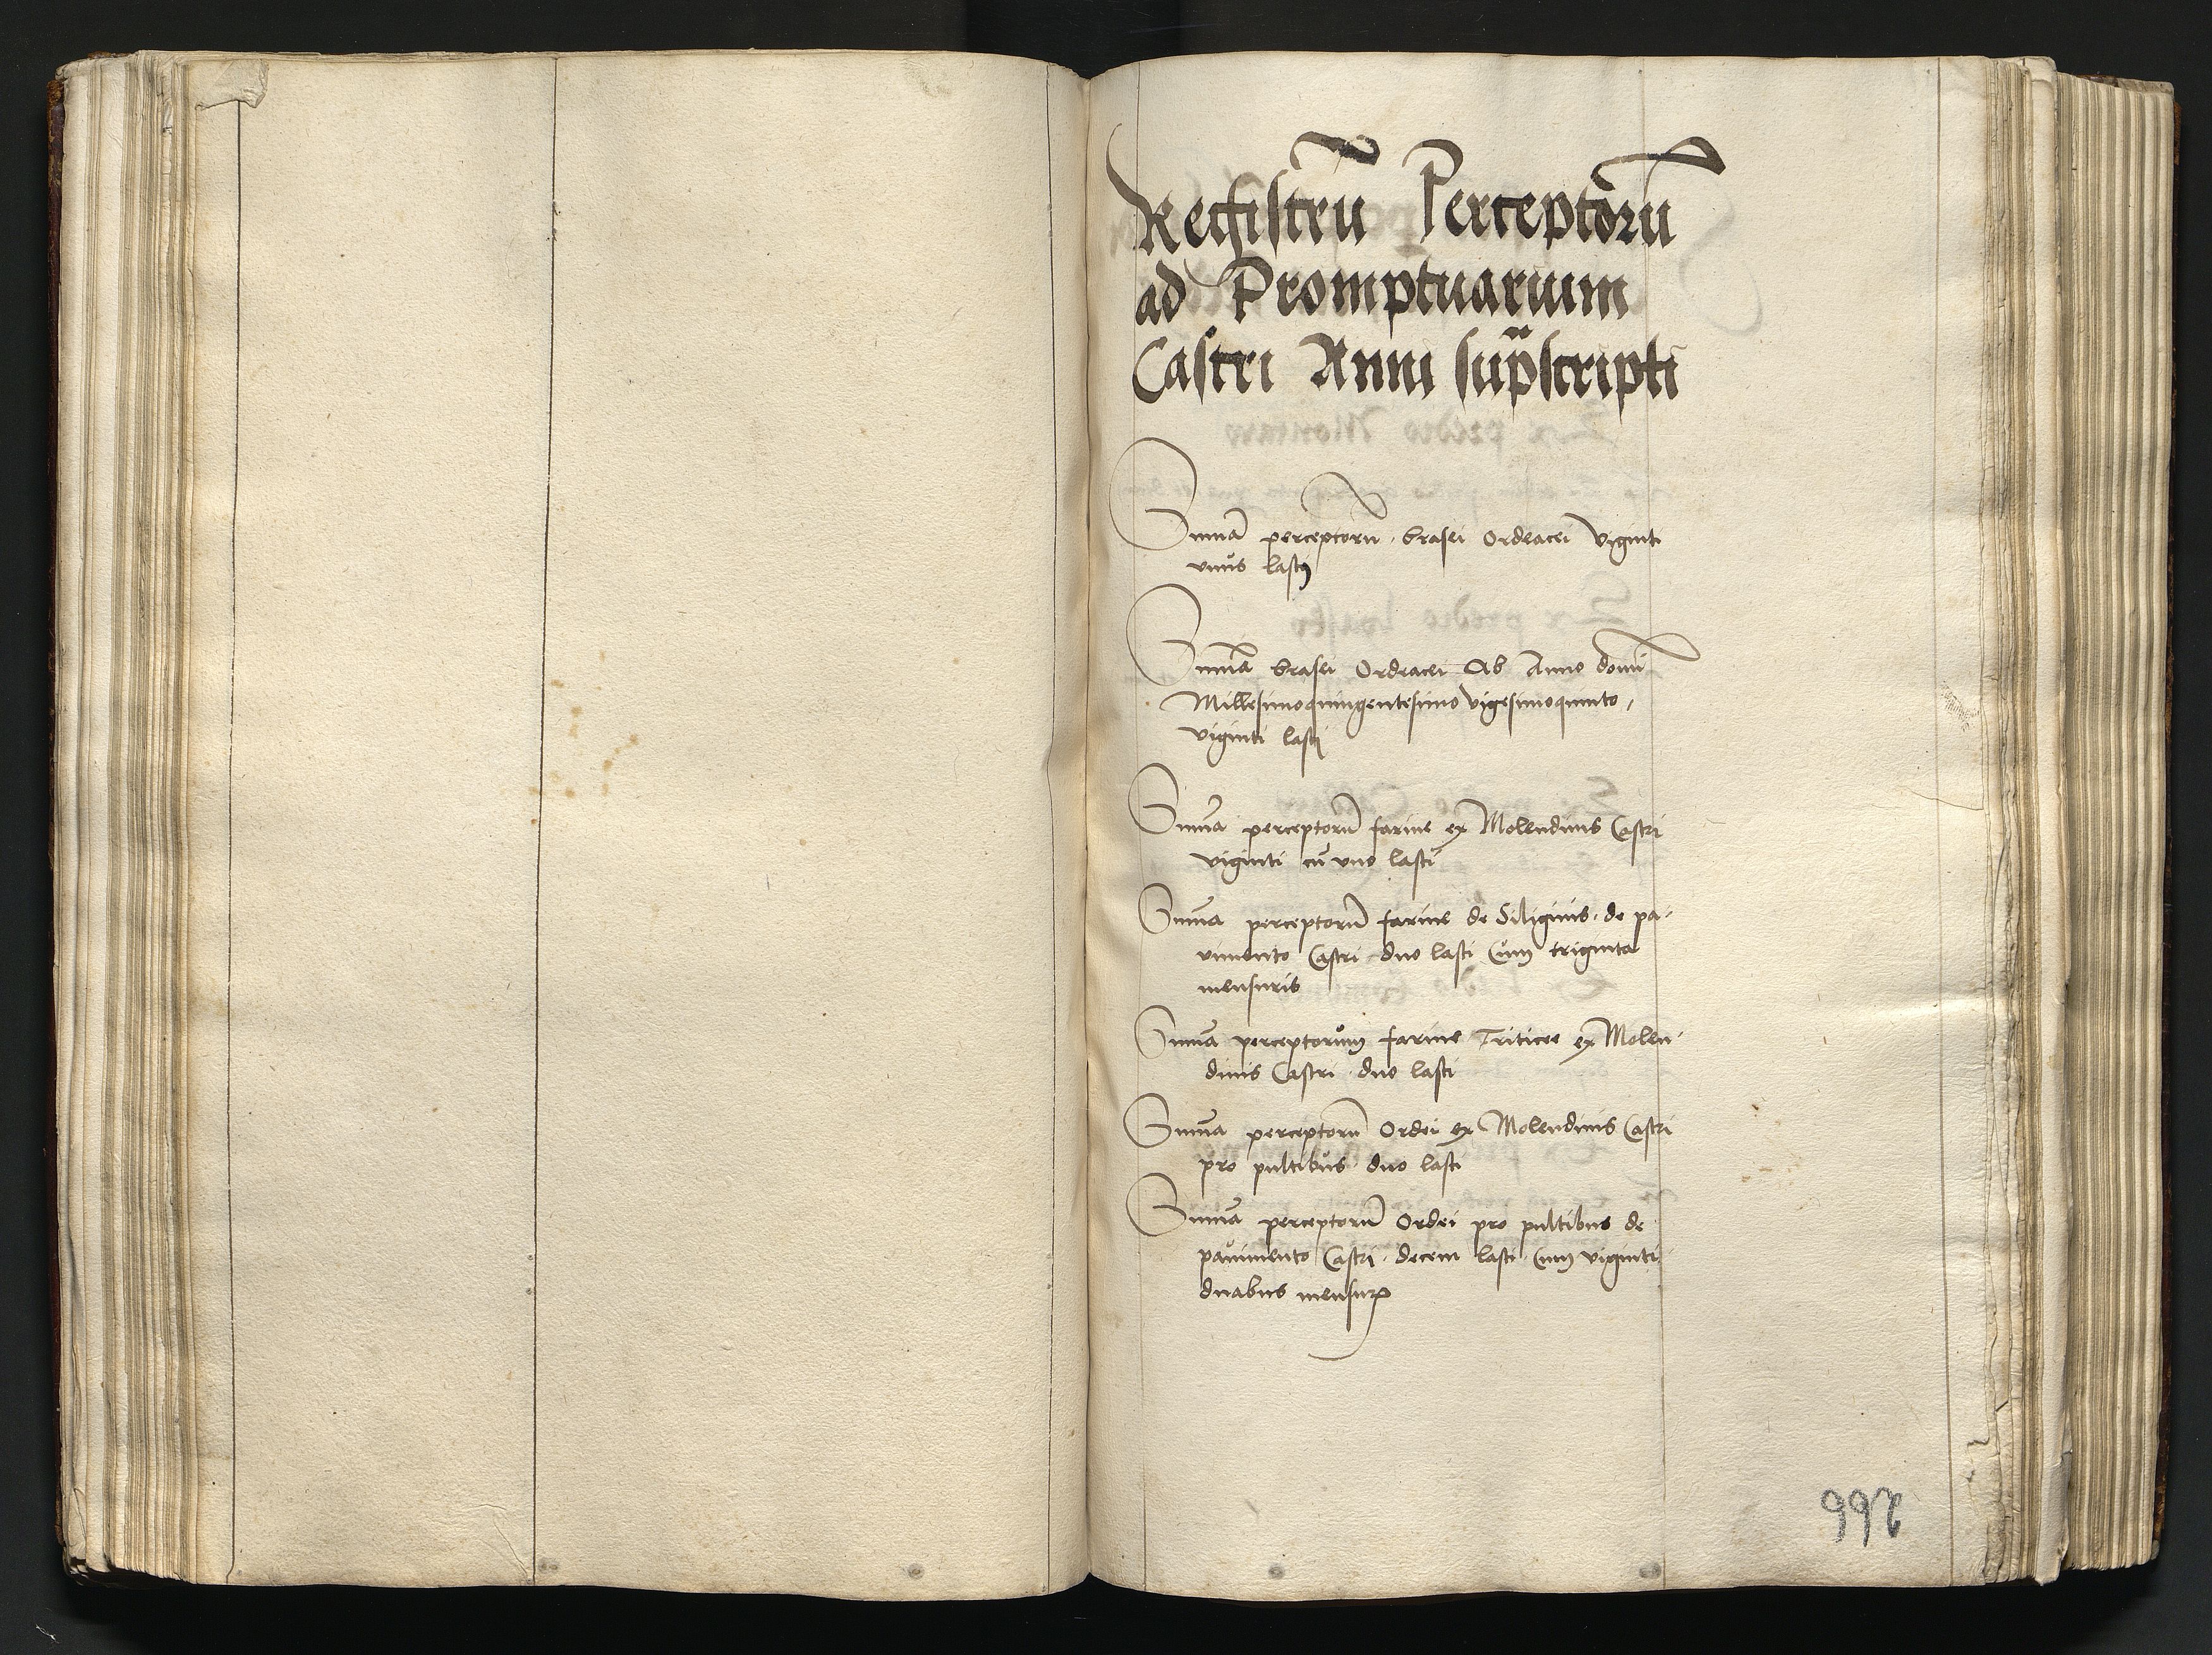 Registrū Perceptorū
ad Promptuarium
Castri Anni sup̄scripti
Summa perceptorū brasei Ordeacei Viginti
vnus lastꝯ
Summa brasei Ordeacei Ab Anno domi
Millesimoquingentesimo vigesimoquinto,
viginti lasti
Summa perceptorū farine ex Molendinis Castri
viginti cū vno lasti
Summa perceptorū farine de Siliginis de pa-
vimento Castri duo lasti Cum triginta
mensuris
Summa perceptorum farine Triticee ex Molen-
dinis Castri duo lasti
Summa perceptorū Ordei ex Molendinis Castri
pro pultibus duo lasti
Summa perceptorū Ordei pro pultibus de
pauimento Castri decem lasti Cum viginti
duabus mensurꝭ
266